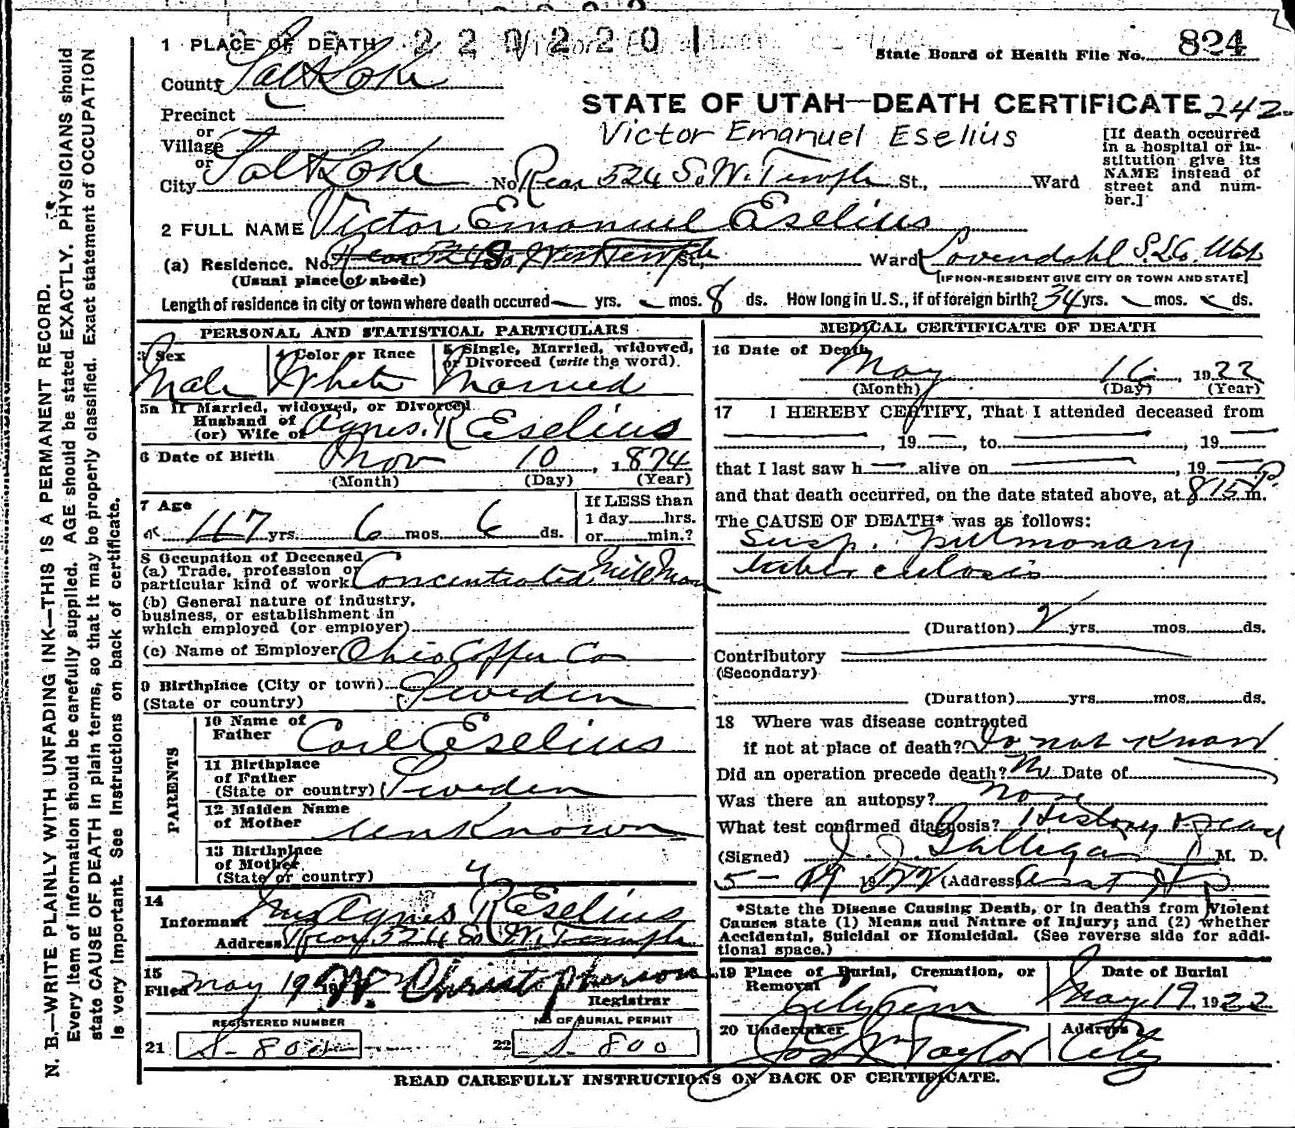 2 2 0 2 2 0 1
1 PLACE OF DEATH
State Board of Health File No. 824
County Salt Lake
STATE OF UTAH—DEATH CERTIFICATE 242
Precinct
or
Village
or
City Salt Lake No. Rear 524 So. W. Temple St., Ward
Victor Emanuel Eselius
[If death occurred in a hospital or in-
stitution give its
NAME instead of
street and num-
ber.]
2 FULL NAME Victor Emanuel Eselius
(a) Residence. No. Rear 524 So West Temple St., Ward Lovendahl S.L.Co. Utah
(Usual place of abode) [IF NON-RESIDENT GIVE CITY OR TOWN AND STATE]
Length of residence in city or town where death occured — yrs. — mos. 8 ds. How long in U. S., if of foreign birth? 34 yrs. mos. ds.
PERSONAL AND STATISTICAL PARTICULARS
3 Sex
Male
4 Color or Race
White
5 Single, Married, widowed,
or Divorced (write the word).
Married
5a If Married, widowed, or Divorced
Husband of
(or) Wife of Agnes. R Eselius
6 Date of Birth Nov 10, 1874
(Month) (Day) (Year)
7 Age
47 yrs. 6 mos. 6 ds.
If LESS than
1 day hrs.
or min.?
8 Occupation of Deceased
(a) Trade, profession or
particular kind of work. Concentrated Mill Man
(b) General nature of industry,
business, or establishment in
which employed (or employer)
(c) Name of Employer Ohio Copper Co
9 Birthplace (City or town)
(State or country) Sweden
PARENTS
10 Name of
Father Carl Eselius
11 Birthplace
of Father
(State or country) Sweden
12 Maiden Name
of Mother Unknown
13 Birthplace
of Mother
(State or country)
14
Informant Mrs Agnes R Eselius
Address Rear 524 So W. Temple
15
Filed May 19 19 W. Christopherson
Registrar
REGISTERED NUMBER
21 S-800
NO OF BURIAL PERMIT
22 S-800
MEDICAL CERTIFICATE OF DEATH
16 Date of Death
May 16 1922
(Month) (Day) (Year)
17 I HEREBY CERTIFY, That I attended deceased from
, 19 , to , 19
that I last saw h alive on , 19
and that death occurred, on the date stated above, at 8 15 P m.
The CAUSE OF DEATH* was as follows:
Susp. pulmonary
tuberculosis
(Duration) 2 yrs. mos. ds.
Contributory
(Secondary)
(Duration) yrs. mos. ds.
18 Where was disease contracted
if not at place of death? Do not know
Did an operation precede death? No Date of
Was there an autopsy? None
What test confirmed diagnosis? History
(Signed) J. J. Galligan M. D.
5- 19 1922 (Address)
*State the Disease Causing Death, or in deaths from Violent
Causes state (1) Means and Nature of Injury; and (2) whether
Accidental, Suicidal or Homicidal. (See reverse side for addi-
tional space.)
19 Place of Burial, Cremation, or
Removal
City Cem
Date of Burial
May 19 1922
20 Undertaker
Jos Wm Taylor
Address
City
READ CAREFULLY INSTRUCTIONS ON BACK OF CERTIFICATE.
N. B.—WRITE PLAINLY WITH UNFADING INK—THIS IS A PERMANENT RECORD.
Every item of information should be carefully supplied. AGE should be stated EXACTLY. PHYSICIANS should
state CAUSE OF DEATH in plain terms, so that it may be properly classified. Exact statement of OCCUPATION
is very important. See instructions on back of certificate.